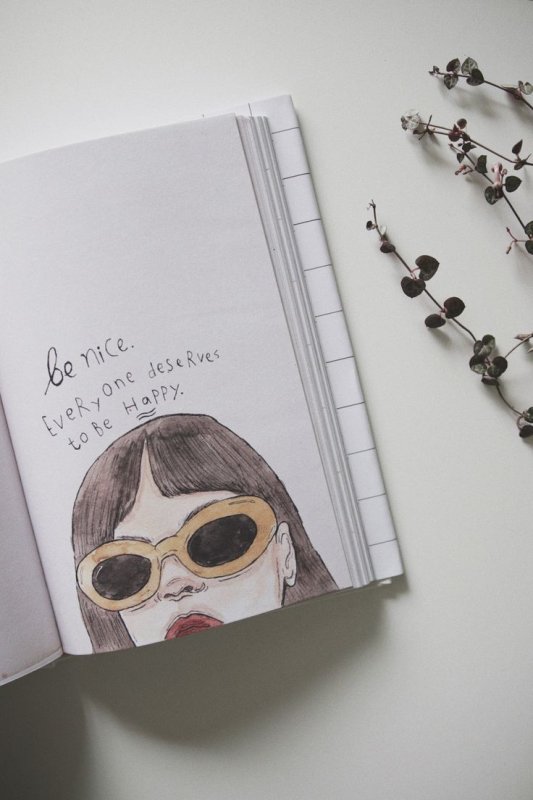 be nice.
EveRyone deseRves
to Be HaPPy.